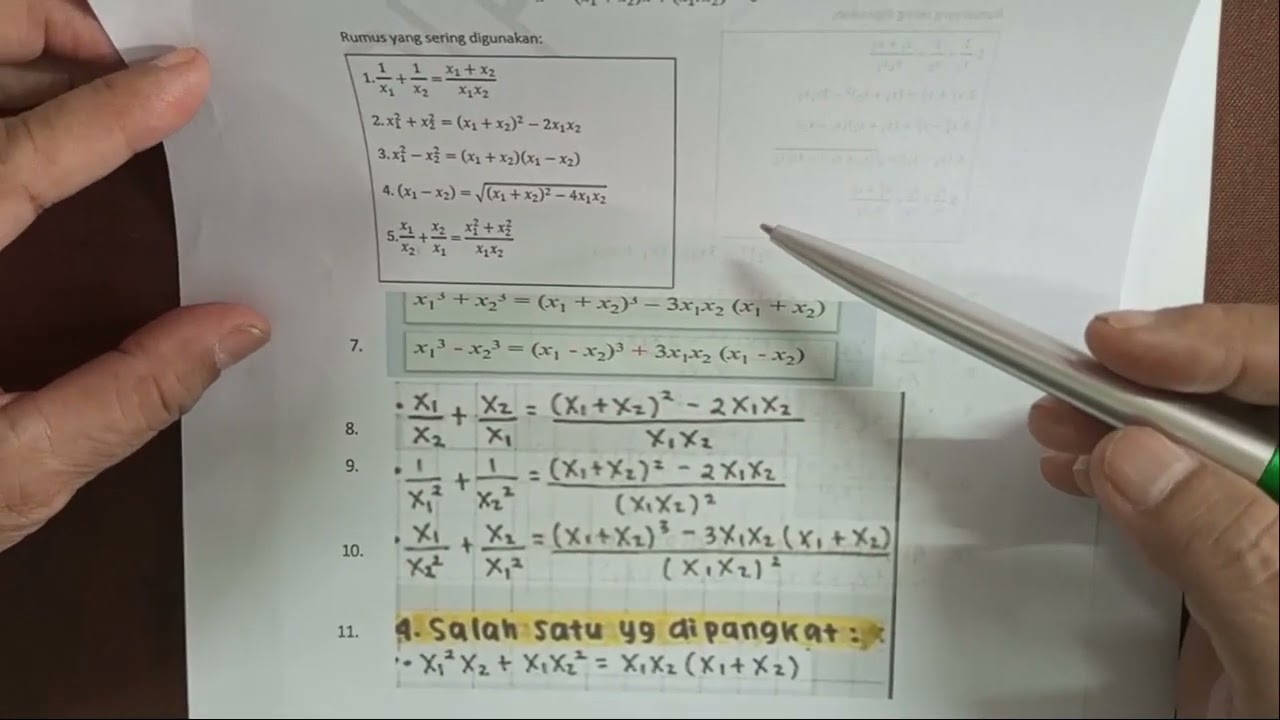 Rumus yang sering digunakan:
1. 1/x₁ + 1/x₂ = (x₁ + x₂)/(x₁x₂)
2. x₁² + x₂² = (x₁ + x₂)² − 2x₁x₂
3. x₁² − x₂² = (x₁ + x₂)(x₁ − x₂)
4. (x₁ − x₂) = √((x₁ + x₂)² − 4x₁x₂)
5. x₁/x₂ + x₂/x₁ = (x₁² + x₂²)/(x₁x₂)
x₁³ + x₂³ = (x₁ + x₂)³ − 3x₁x₂ (x₁ + x₂)
7. x₁³ - x₂³ = (x₁ - x₂)³ + 3x₁x₂ (x₁ - x₂)
8. • X₁/X₂ + X₂/X₁ = ((X₁+X₂)² − 2X₁X₂)/(X₁X₂)
9. • 1/X₁² + 1/X₂² = ((X₁+X₂)² − 2X₁X₂)/(X₁X₂)²
10. • X₁/X₂² + X₂/X₁² = ((X₁+X₂)³ − 3X₁X₂(X₁+X₂))/(X₁X₂)²
11. 4. Salah satu yg dipangkat :
• X₁²X₂ + X₁X₂² = X₁X₂(X₁+X₂)